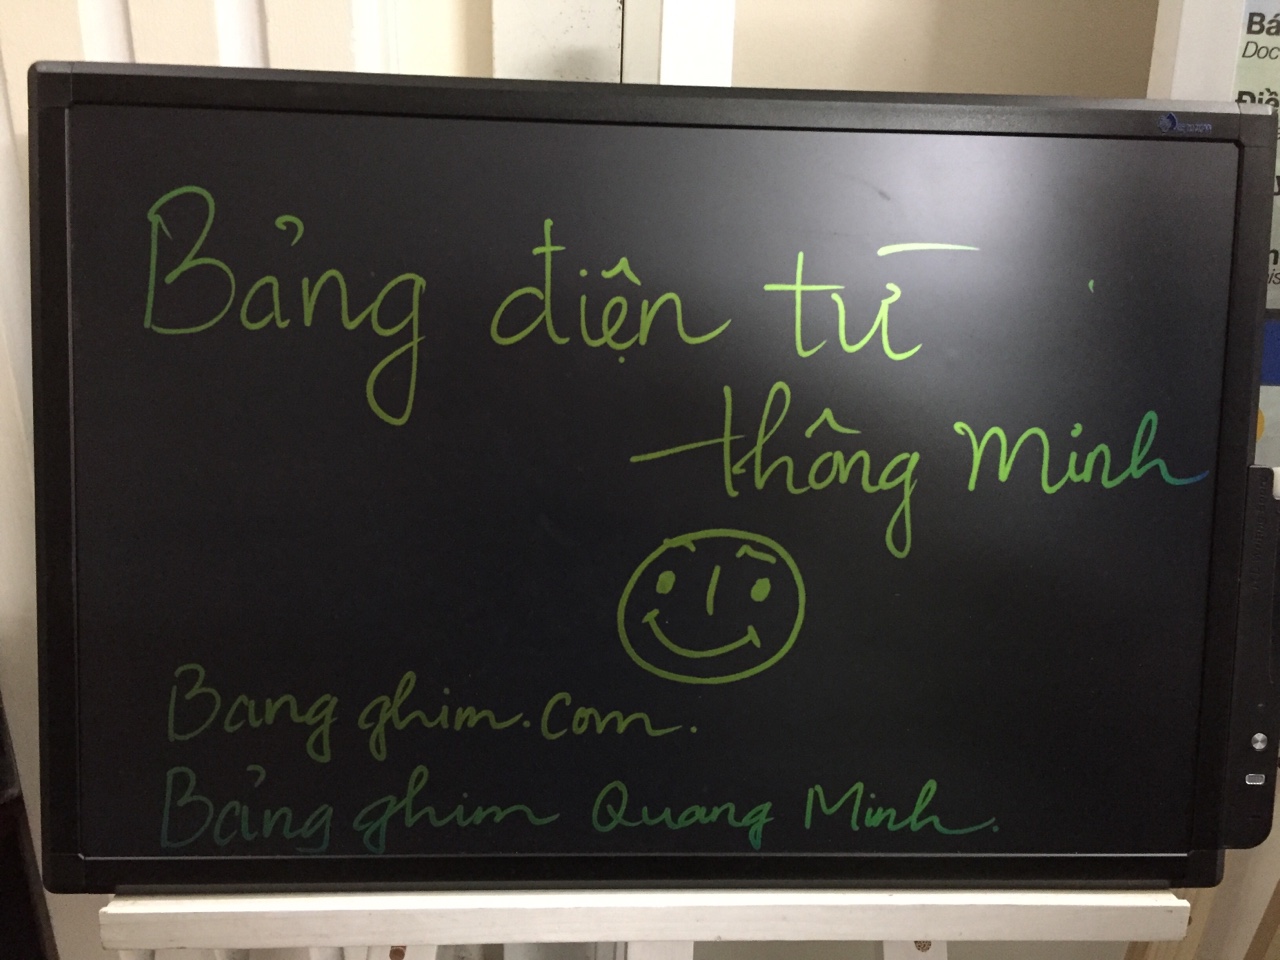 Bảng điện tử
thông minh
Bangghim.com.
Bảng ghim Quang Minh.
Bả
Doc
Điề